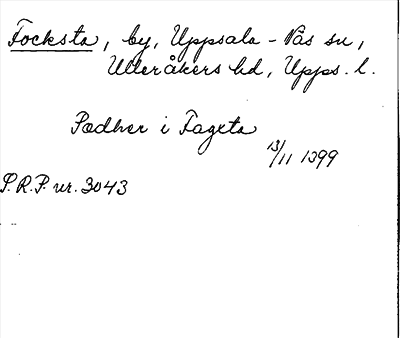 Focksta, by, Uppsala-Näs sn,
Ulleråkers hd, Upps. l.
Pædher i Fagsta
13/11 1399
S.R.P. nr. 3043